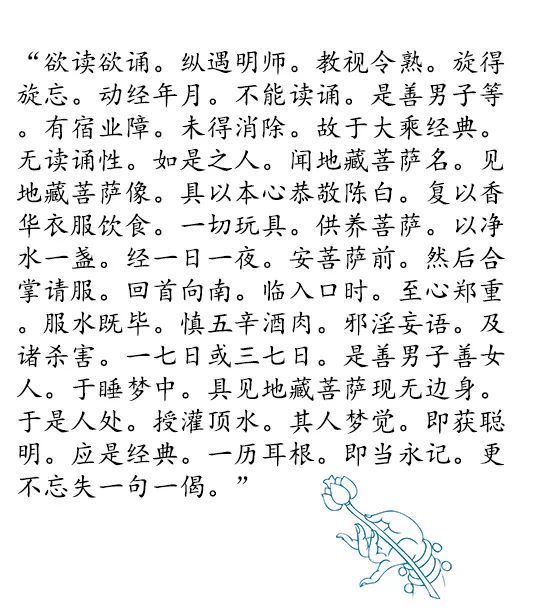 “欲读欲诵。纵遇明师。教视令熟。旋得
旋忘。动经年月。不能读诵。是善男子等
。有宿业障。未得消除。故于大乘经典。
无读诵性。如是之人。闻地藏菩萨名。见
地藏菩萨像。具以本心恭敬陈白。复以香
华衣服饮食。一切玩具。供养菩萨。以净
水一盏。经一日一夜。安菩萨前。然后合
掌请服。回首向南。临入口时。至心郑重
。服水既毕。慎五辛酒肉。邪淫妄语。及
诸杀害。一七日或三七日。是善男子善女
人。于睡梦中。具见地藏菩萨现无边身。
于是人处。授灌顶水。其人梦觉。即获聪
明。应是经典。一历耳根。即当永记。更
不忘失一句一偈。”